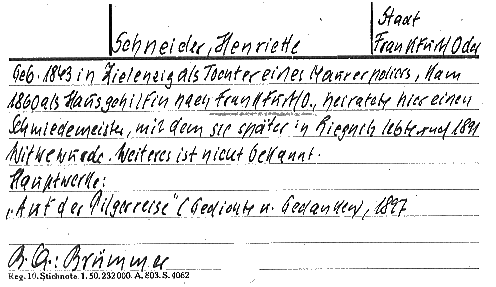 Schneider, Henriette
Stadt
Frankfurt/Oder
Geb. 1843 in Zielenzig als Tochter eines Maurerpoliers, kam
1860 als Hausgehilfin nach Frankfurt/O., heiratete hier einen
Schmiedemeister, mit dem sie später in Liegnitz lebte und 1891
Witwe wurde. Weiteres ist nicht bekannt.
Hauptwerke:
„Auf der Pilgerreise" (Gedichte u. Gedanken), 1897
B.A.: Brümmer
Reg. 10. Stichnote. 1. 50. 232000. A. 803. S. 4062